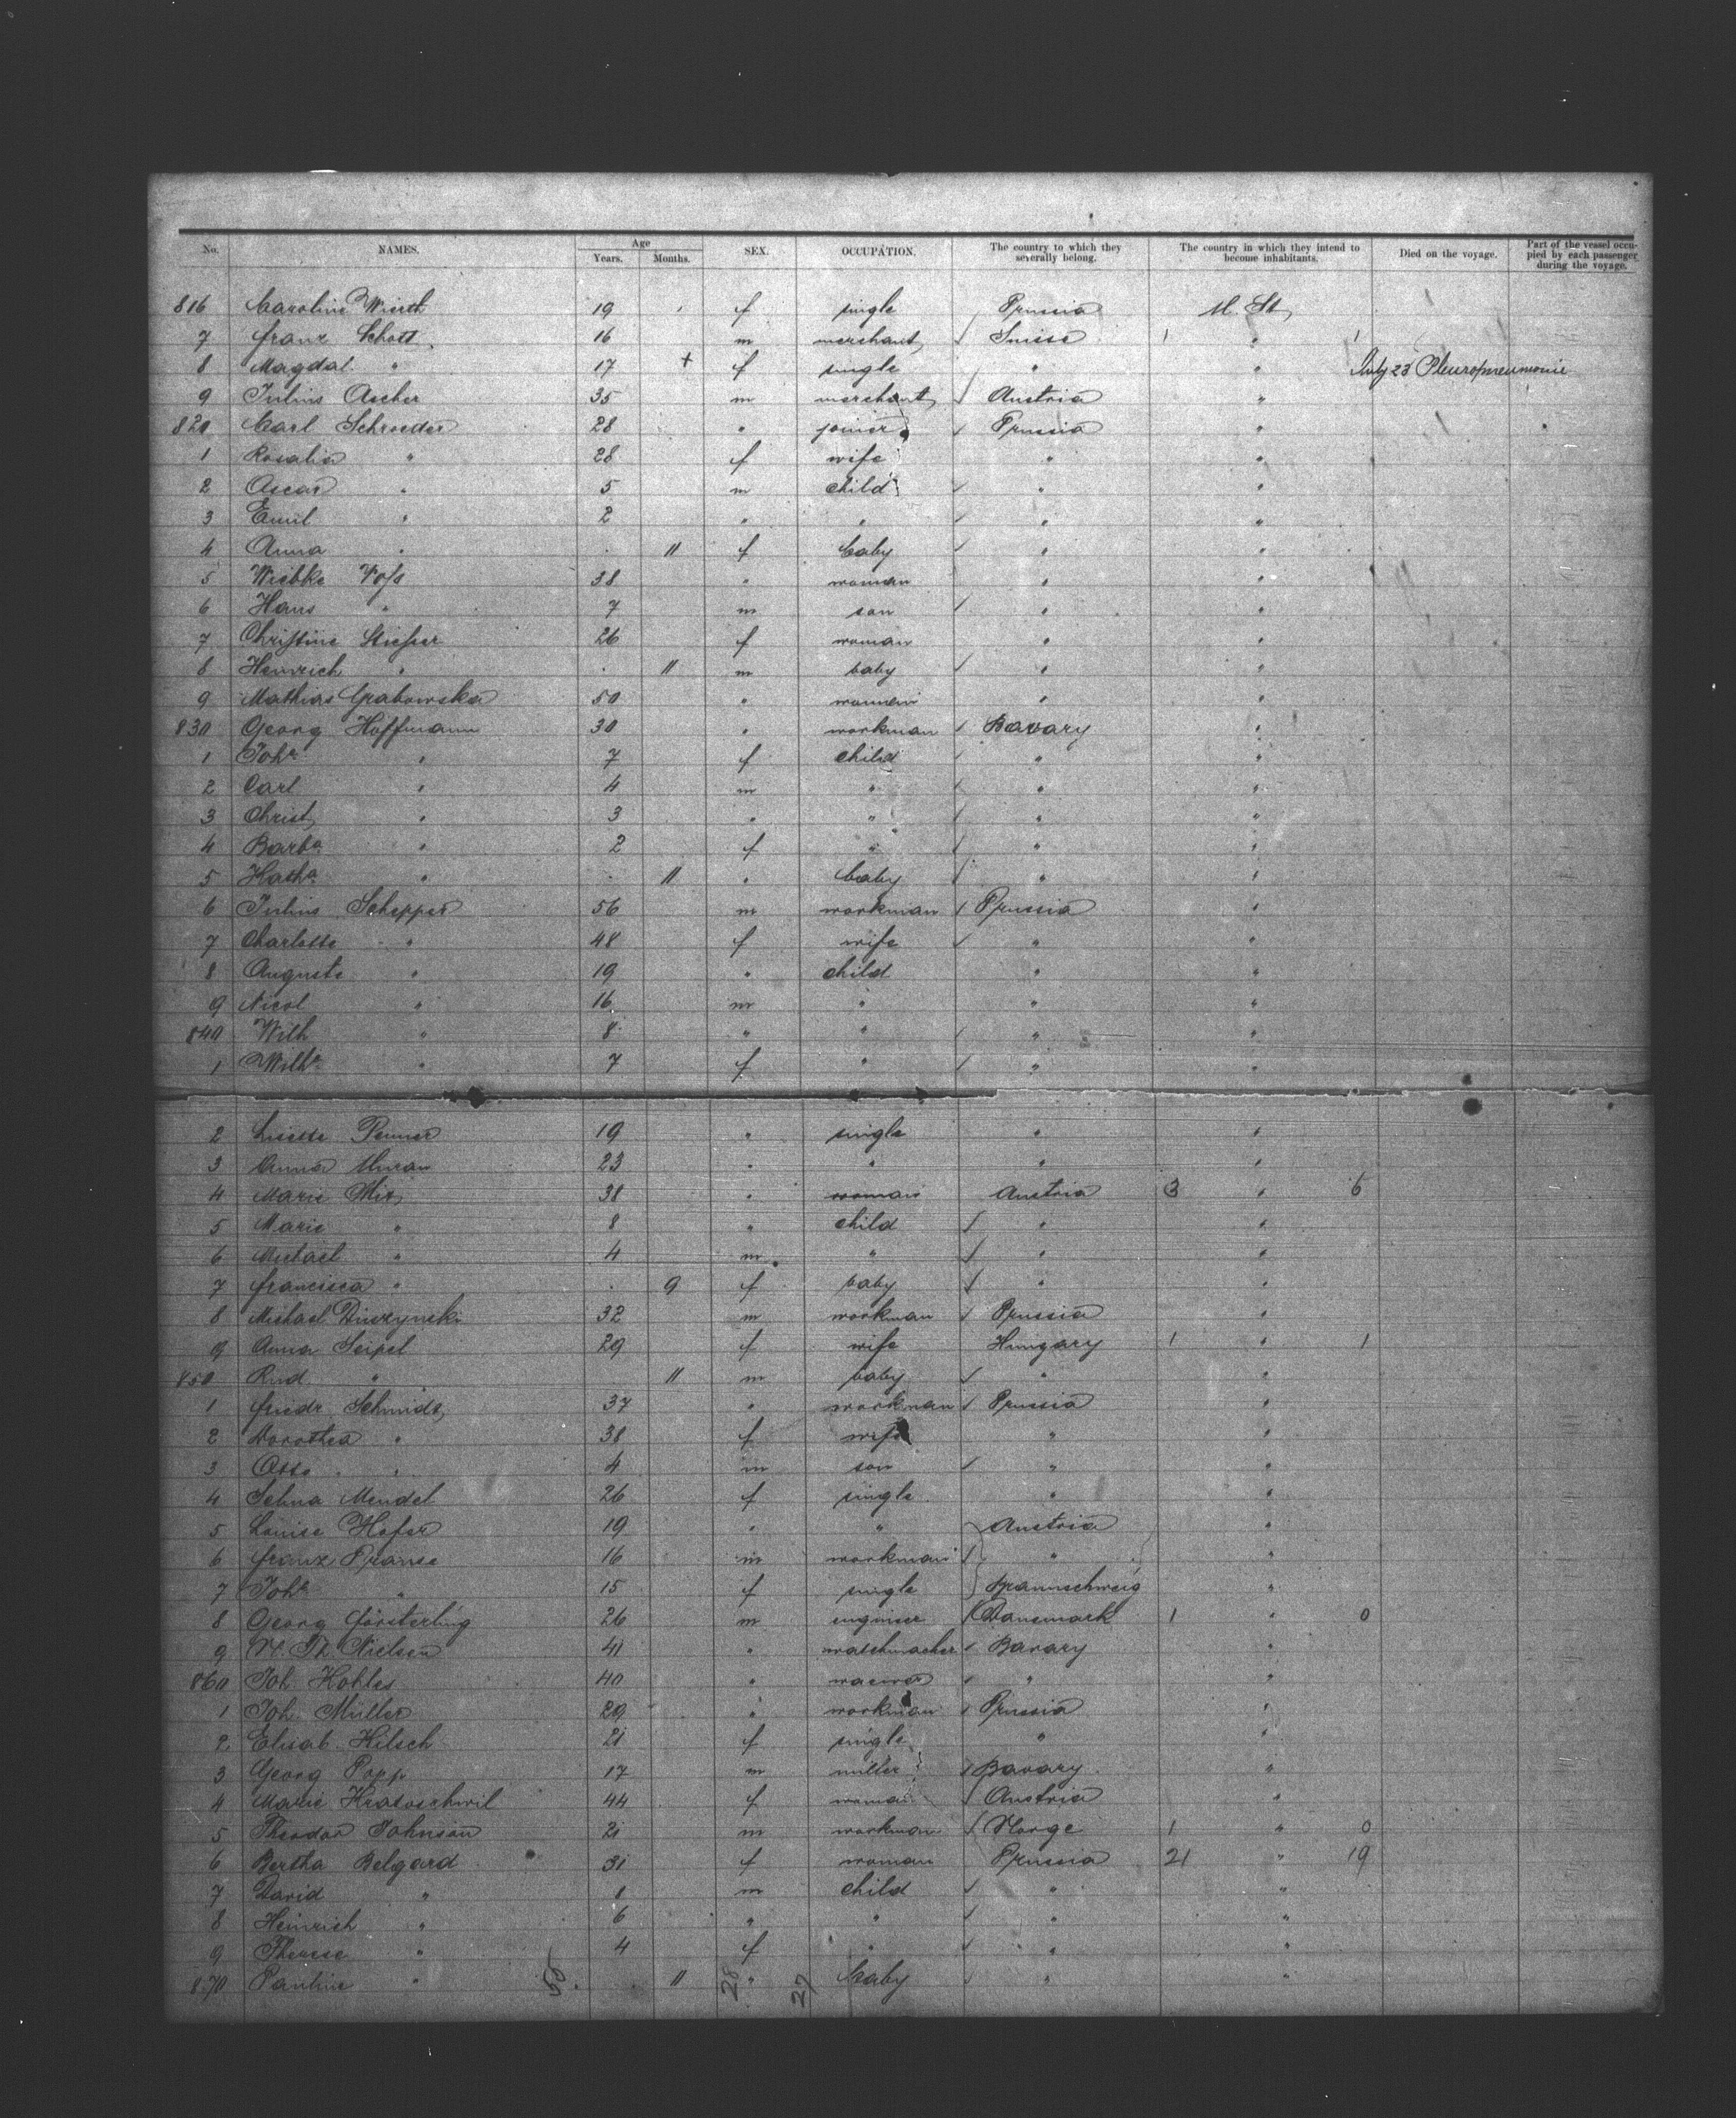 No. NAMES. Age Years. Months. SEX. OCCUPATION. The country to which they severally belong. The country in which they intend to become inhabitants. Died on the voyage. Part of the vessel occupied by each passenger during the voyage.
816 Caroline 19 f single Prussia U. St,
7 Franz Schott 16 m merchant Suisse " 1 1
8 Magdal. " 17 + f single " " July 23 Pleuropneumonie
9 Julius Ascher 35 m merchant Austria "
820 Carl Schroeder 28 " joiner Prussia "
1 Rosalia " 28 f wife " "
2 Oscar " 5 m child " "
3 Emil " 2 " " " "
4 Anna " . 11 f baby " "
5 Wiebke Voss 38 " woman " "
6 Hans " 7 m son " "
7 Christine 26 f woman " "
8 Heinrich " . 11 m baby " "
9 Mathias Grabowska 50 " "
830 Georg Hoffmann 30 " workman Bavary "
1 Joha " 7 f child " "
2 Carl " 4 m " " "
3 Christ, " 3 " " " "
4 Barba " 2 f " " "
5 Katha " . 11 " baby " "
6 Julius Schepper 56 m workman Prussia "
7 Charlotte " 48 f wife " "
8 Auguste " 19 " child " "
9 Nicol " 16 m " " "
840 Wilh " 8 " " " "
1 Wilha " 7 f " " "
2 Lisette Penner 19 " single " "
3 Anna 23 " " " "
4 Marie 38 " woman Austria 3 " 6
5 Marie " 8 " child " "
6 Michael " 4 m " " "
7 Francisca " . 9 f baby " "
8 Michael 32 m workman Prussia "
9 Anna Seipel 29 f wife Hungary 1 " 1
850 Rud. " 11 m baby " "
1 Friedr Schmidt, 37 " workman Prussia "
2 Dorothea " 38 f wife " "
3 Otto " 4 m son " "
4 Selma Mendel 26 f single " "
5 Louise Hofer 19 " " Austria "
6 Franz 16 m workman " "
7 Joha " 15 f single Braunschweig "
8 Georg Försterling 26 m engineer Danemark 1 " 0
9 N. Th. Nielsen 41 " watchmacher Bavary "
860 Joh. Kohles 40 " " "
1 Joh. Müller 29 " workman Prussia "
2 Elisab. Hilsch 21 f single " "
3 Georg Popp 17 m miller Bavary "
4 Marie Kratoschwil 44 f woman Austria "
5 Theodor Johnson 21 m workman Norge 1 " 0
6 Bertha Belgard 31 f woman Prussia 21 " 19
7 David " 8 m child " "
8 Heinrich " 6 " " " "
9 Therese " 4 f " " "
870 Pauline " 11 " baby " "
28 27